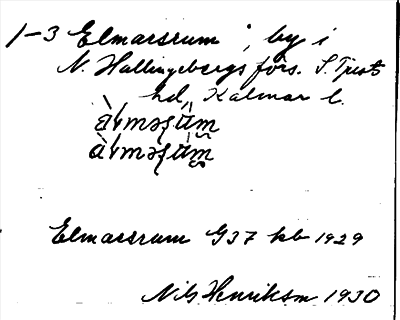 1-3 Elmarsrum, by i
N. Hallingebergs förs. S. Tjusts
hd, Kalmar l.
Elmarsrum G37 kb 1929
Nils Henrikson 1930